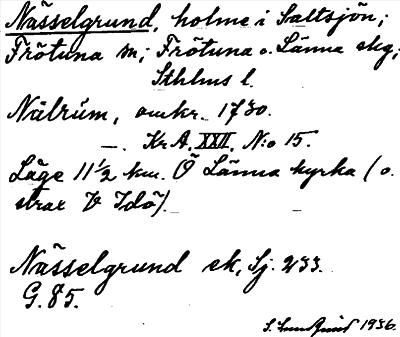 Nässelgrund, holme i Saltsjön;
Frötuna sn; Frötuna o. Länna skg;
Sthlms l.
Nälrúm, omkr. 1730.
—. Kr A. XXII. N:o 15.
Läge 11½ km. Ö Länna kyrka (o.
strax V Idö).
Nässelgrund ek, Sj. 233.
G. 85.
1936.